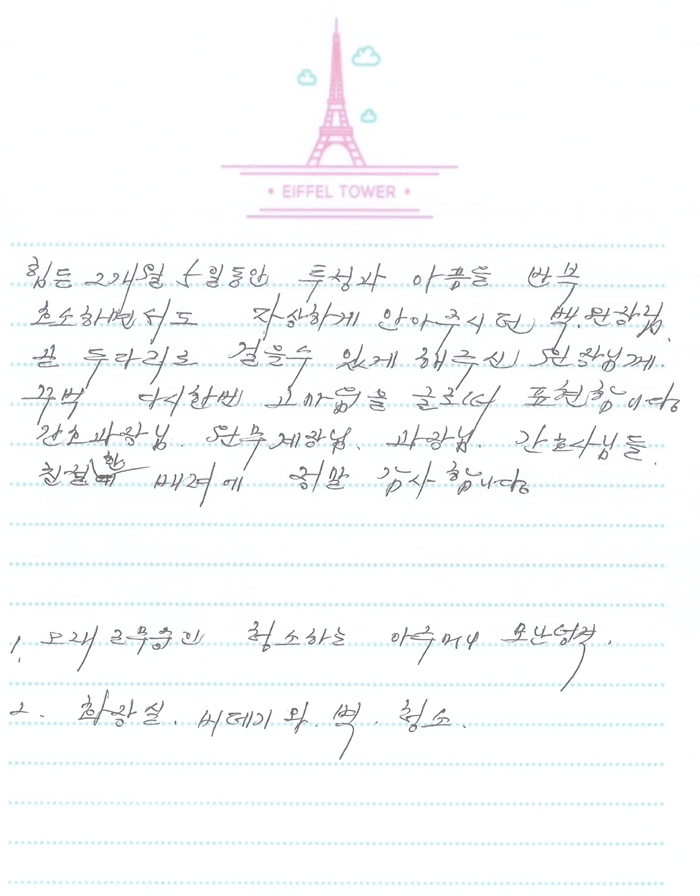 • EIFFEL TOWER •
힘든 2개월 5일동안 투정과 아픔을 반복
호소하면서도 자상하게 안아주시던 백.원장님.
두다리로 걸을수 있게 해주신 원장님께.
꾸벅 다시한번 고마움을 글로서 표현합니다
간호과장님. 원무계장님. 과장님. 간호사님들.
친절한 배려에 정말 감사합니다
1. 오래 근무중인 청소하는 아주머니
2. 화장실. 벽. 청소.